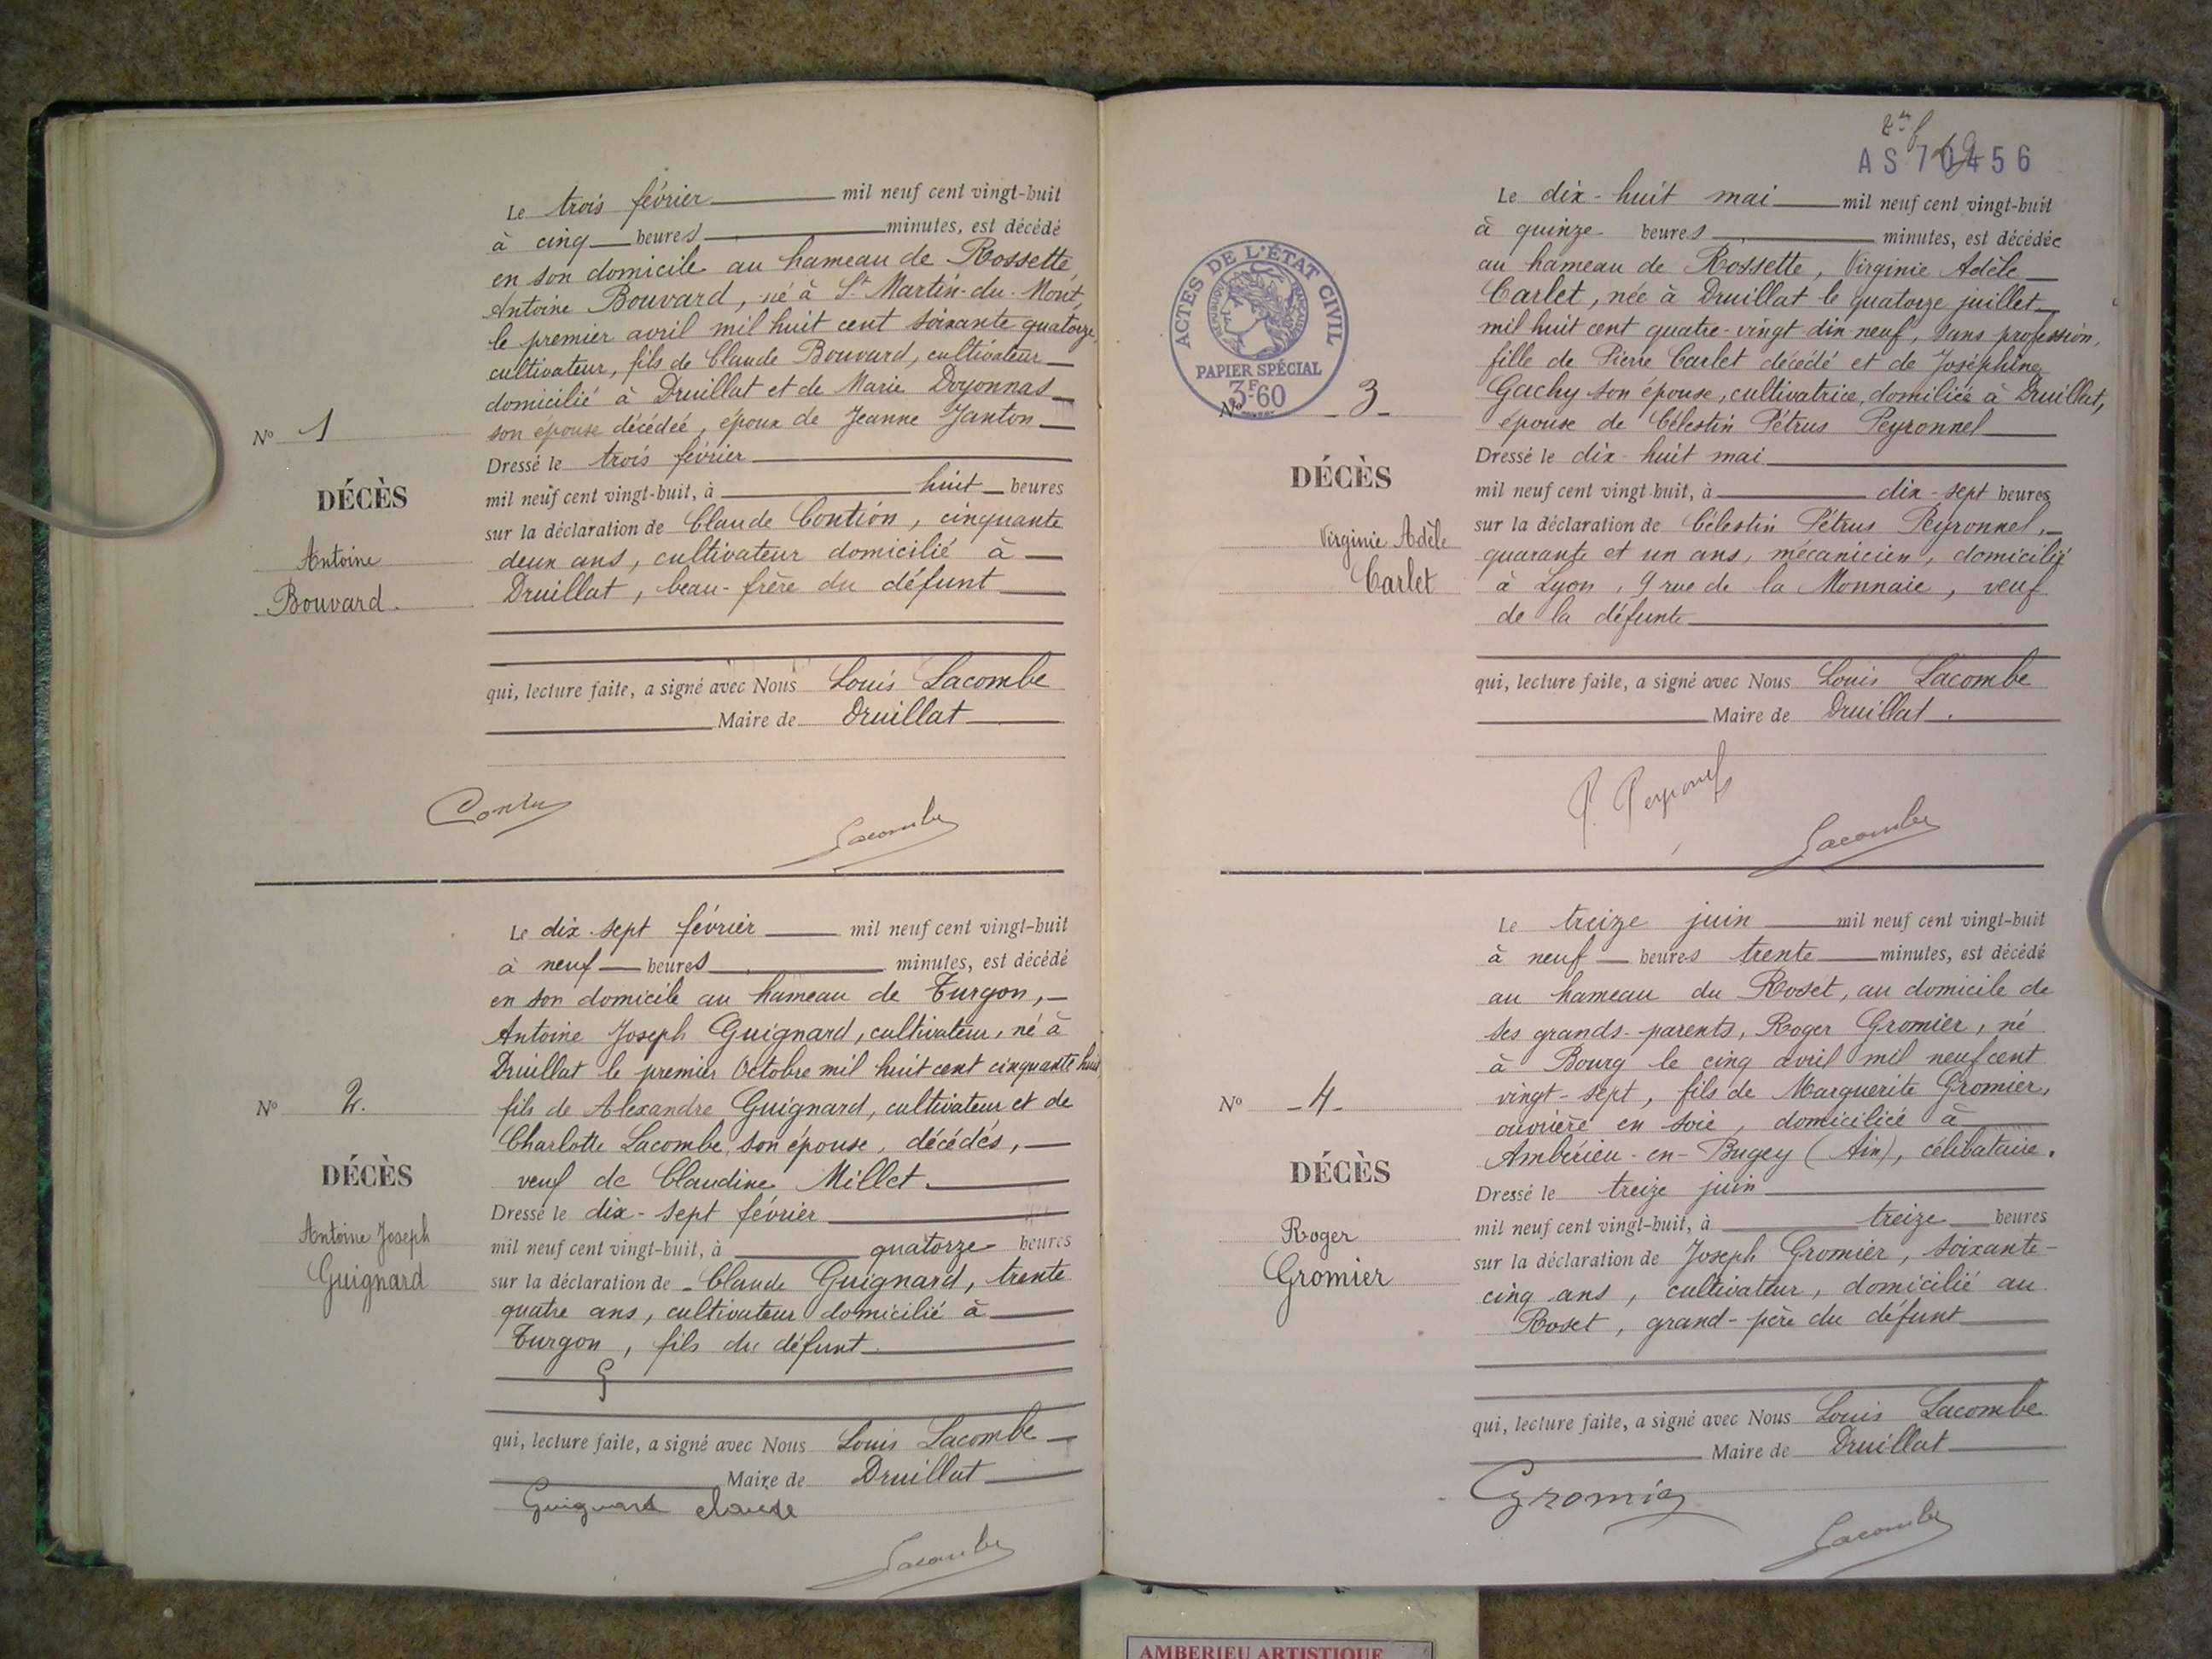 Le trois février mil neuf cent vingt-huit
à cinq heures minutes, est décédé
en son domicile au hameau de Rossette,
Antoine Bouvard, né à St Martin-du-Mont,
le premier avril mil huit cent soixante quatorze,
cultivateur, fils de Claude Bouvard, cultivateur
domicilié à Druillat et de Marie Doyonnas
son épouse décédée, époux de Jeanne Janton
Nº 1
Dressé le trois février
DÉCÈS
mil neuf cent vingt-huit, à huit heures
sur la déclaration de Claude Contion, cinquante
Antoine
deux ans, cultivateur domicilié à
Bouvard.
Druillat, beau-frère du défunt
qui, lecture faite, a signé avec Nous Louis Lacombe
Maire de Druillat
Lacombe
Le dix-sept février mil neuf cent vingt-huit
à neuf heures minutes, est décédé
en son domicile au hameau de Turgon,
Antoine Joseph Guignard, cultivateur, né à
Druillat le premier Octobre mil huit cent cinquante huit,
Nº 2.
fils de Alexandre Guignard, cultivateur et de
Charlotte Lacombe, son épouse, décédés,
DÉCÈS
veuf de Claudine Millet.
Dressé le dix-sept février
Antoine Joseph
mil neuf cent vingt-huit, à quatorze heures
Guignard
sur la déclaration de Claude Guignard, trente
quatre ans, cultivateur domicilié à
Turgon, fils du défunt.
qui, lecture faite, a signé avec Nous Louis Lacombe
Maire de Druillat
Guignard claude
Lacombe
AS 70456
ACTES DE L'ÉTAT CIVIL
RÉPUBLIQUE FRANÇAISE
PAPIER SPÉCIAL
3F60
Le dix-huit mai mil neuf cent vingt-huit
à quinze heures minutes, est décédée
au hameau de Rossette, Virginie Adèle
Carlet, née à Druillat le quatorze juillet
mil huit cent quatre-vingt dix neuf, sans profession,
fille de Pierre Carlet décédé et de Joséphine
Nº 3
Gachy son épouse, cultivatrice, domiciliée à Druillat,
épouse de Célestin Pétrus Peyronnel
DÉCÈS
Dressé le dix-huit mai
mil neuf cent vingt-huit, à dix-sept heures
Virginie Adèle
sur la déclaration de Célestin Pétrus Peyronnel,
quarante et un ans, mécanicien, domicilié
Carlet
à Lyon, 9 rue de la Monnaie, veuf
de la défunte
qui, lecture faite, a signé avec Nous Louis Lacombe
Maire de Druillat.
Lacombe
Le treize juin mil neuf cent vingt-huit
à neuf heures trente minutes, est décédé
au hameau du Roset, au domicile de
ses grands-parents, Roger Gromier, né
à Bourg le cinq avril mil neuf cent
Nº 4
vingt-sept, fils de Marguerite Gromier,
ouvrière en soie, domiciliée à
Ambérieu-en-Bugey (Ain), célibataire.
DÉCÈS
Dressé le treize juin
Roger
mil neuf cent vingt-huit, à treize heures
Gromier
sur la déclaration de Joseph Gromier, soixante-
cinq ans, cultivateur, domicilié au
Roset, grand-père du défunt
qui, lecture faite, a signé avec Nous Louis Lacombe
Maire de Druillat
Lacombe
AMBERIEU ARTISTIQUE